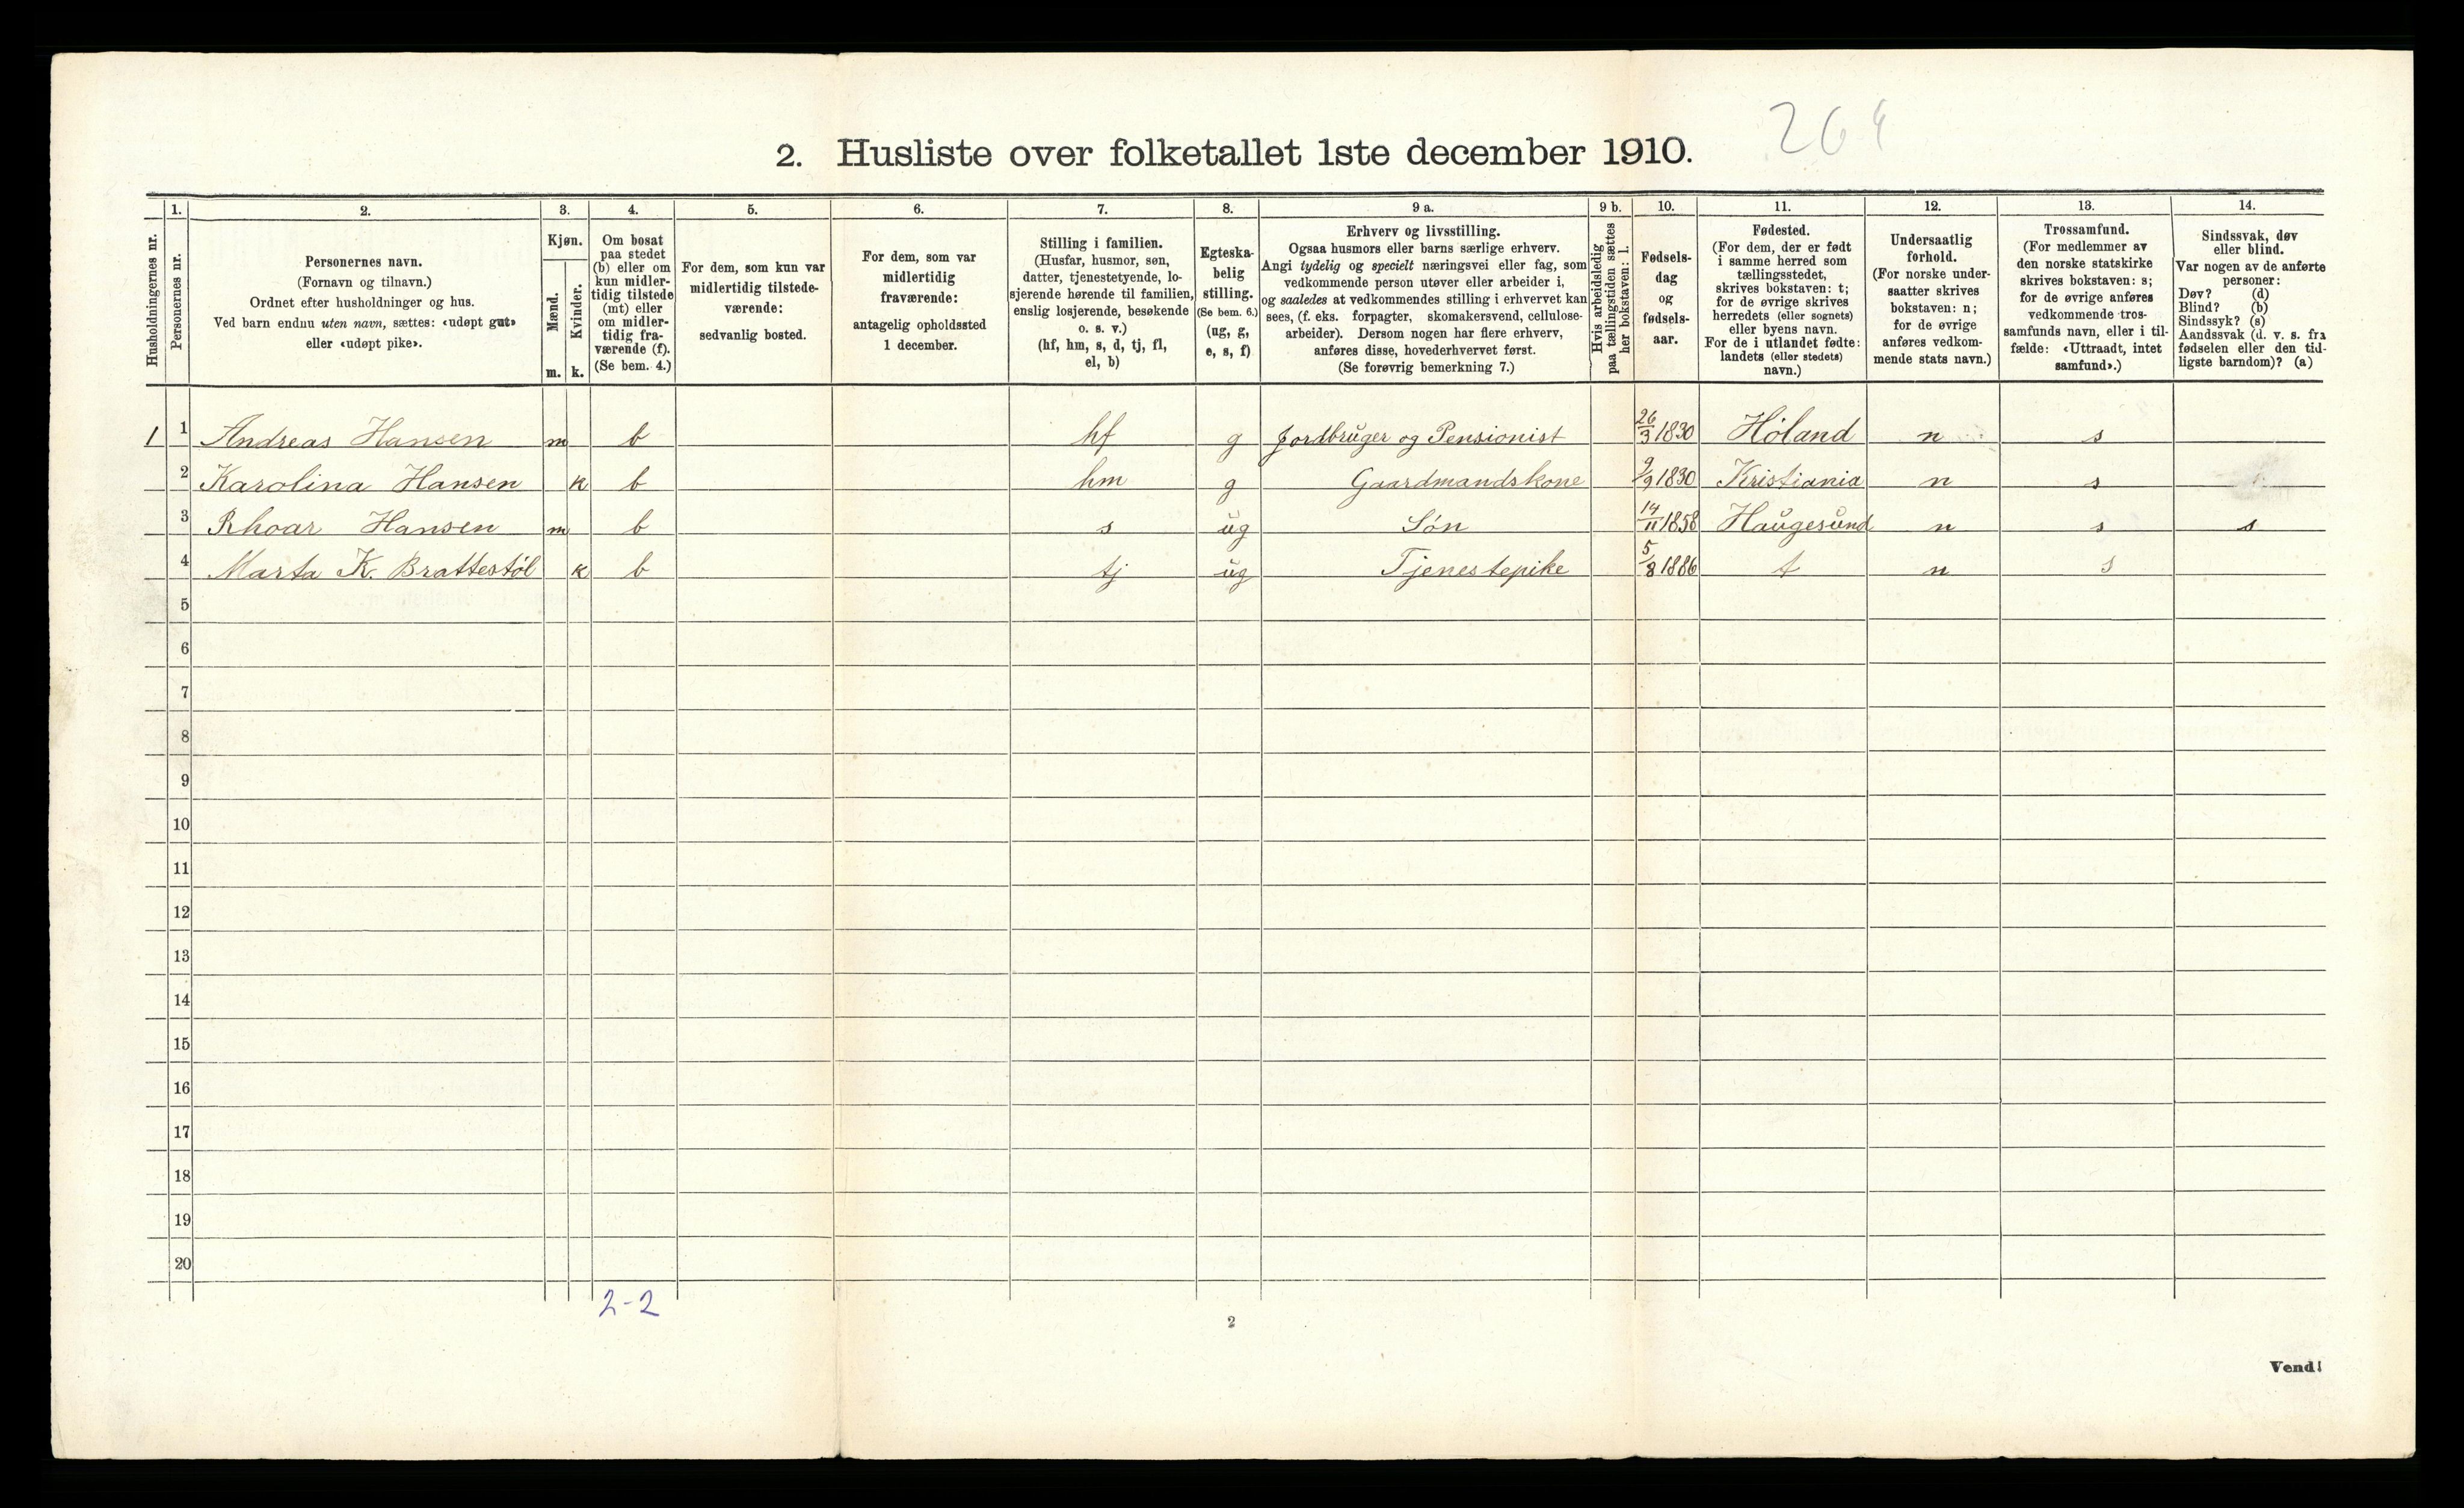 264
2. Husliste over folketallet 1ste december 1910.
Husholdningernes nr.
1.
Personernes nr.
2.
Personernes navn.
(Fornavn og tilnavn.)
Ordnet efter husholdninger og hus.
Ved barn endnu uten navn, sættes: «udøpt gut»
eller «udøpt pike».
3.
Kjøn.
Mænd.
Kvinder.
m. k.
4.
Om bosat
paa stedet
(b) eller om
kun midler-
tidig tilstede
(mt) eller
om midler-
tidig fra-
værende (f).
(Se bem. 4.)
5.
For dem, som kun var
midlertidig tilstede-
værende:
sedvanlig bosted.
6.
For dem, som var
midlertidig
fraværende:
antagelig opholdssted
1 december.
7.
Stilling i familien.
(Husfar, husmor, søn,
datter, tjenestetyende, lo-
sjerende hørende til familien,
enslig losjerende, besøkende
o. s. v.)
(hf, hm, s, d, tj, fl,
el, b)
8.
Egteska-
belig
stilling.
(Se bem. 6.)
(ug, g,
e, s, f)
9 a.
Erhverv og livsstilling.
Ogsaa husmors eller barns særlige erhverv.
Angi tydelig og specielt næringsvei eller fag, som
vedkommende person utøver eller arbeider i,
og saaledes at vedkommendes stilling i erhvervet kan
sees, (f. eks. forpagter, skomakersvend, cellulose-
arbeider). Dersom nogen har flere erhverv,
anføres disse, hovederhvervet først.
(Se forøvrig bemerkning 7.)
9 b.
Hvis arbeidsledig
paa tællingstiden sættes
her bokstaven: l.
10.
Fødsels-
dag
og
fødsels-
aar.
11.
Fødested.
(For dem, der er født
i samme herred som
tællingsstedet,
skrives bokstaven: t;
for de øvrige skrives
herredets (eller sognets)
eller byens navn.
For de i utlandet fødte:
landets (eller stedets)
navn.)
12.
Undersaatlig
forhold.
(For norske under-
saatter skrives
bokstaven: n;
for de øvrige
anføres vedkom-
mende stats navn.)
13.
Trossamfund.
(For medlemmer av
den norske statskirke
skrives bokstaven: s;
for de øvrige anføres
vedkommende tros-
samfunds navn, eller i til-
fælde: «Uttraadt, intet
samfund».)
14.
Sindssvak, døv
eller blind.
Var nogen av de anførte
personer:
Døv? (d)
Blind? (b)
Sindssyk? (s)
Aandssvak (d. v. s. fra
fødselen eller den tid-
ligste barndom)? (a)
1 1 Andreas Hansen m b hf g Jordbruger og Pensionist 26/3 1830 Höland n s
2 Karolina Hansen k b hm g Gaardmandskone 9/9 1830 Kristiania n s
3 Rhoar Hansen m b s ug Són 14/11 1858 Haugesund n s s
4 Marta K. Brattestól k b tj ug Tjenestepike 5/8 1886 t n s
5
6
7
8
9
10
11
12
13
14
15
16
17
18
19
20
2-2
2
Vend!